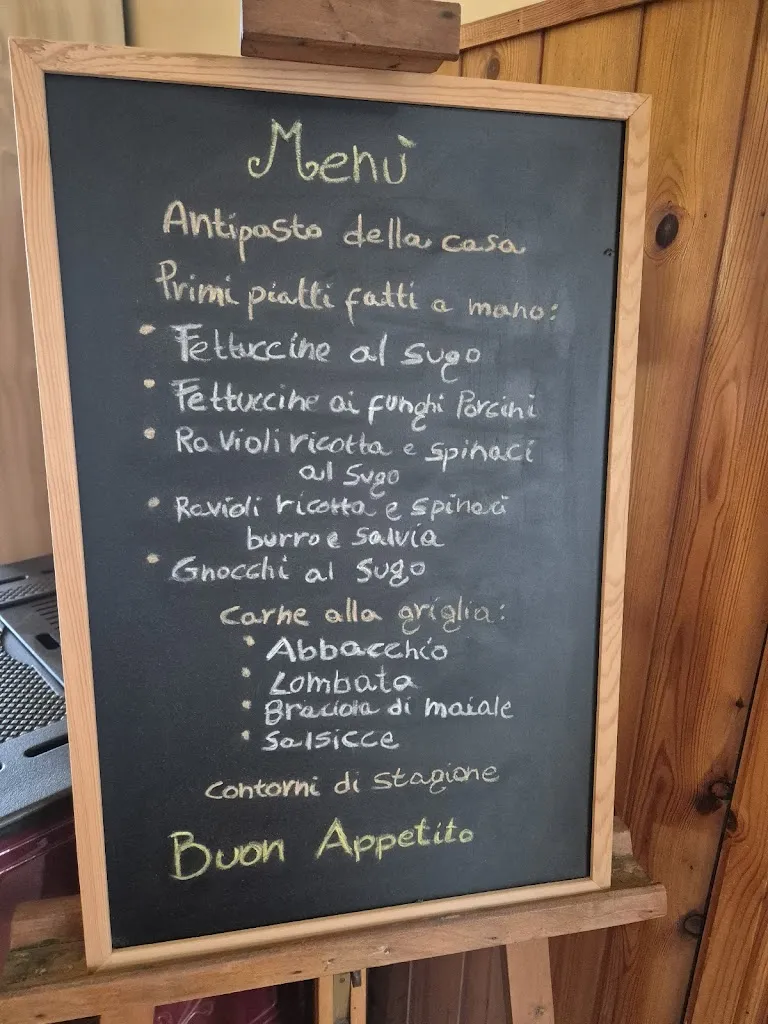 Menù
Antipasto della casa
Primi piatti fatti a mano:
• Fettuccine al sugo
• Fettuccine ai funghi Porcini
• Ravioli ricotta e spinaci
al sugo
• Ravioli ricotta e spinaci
burro e salvia
• Gnocchi al sugo
Carne alla griglia:
• Abbacchio
• Lombata
• Braciola di maiale
• Salsicce
Contorni di stagione
Buon Appetito